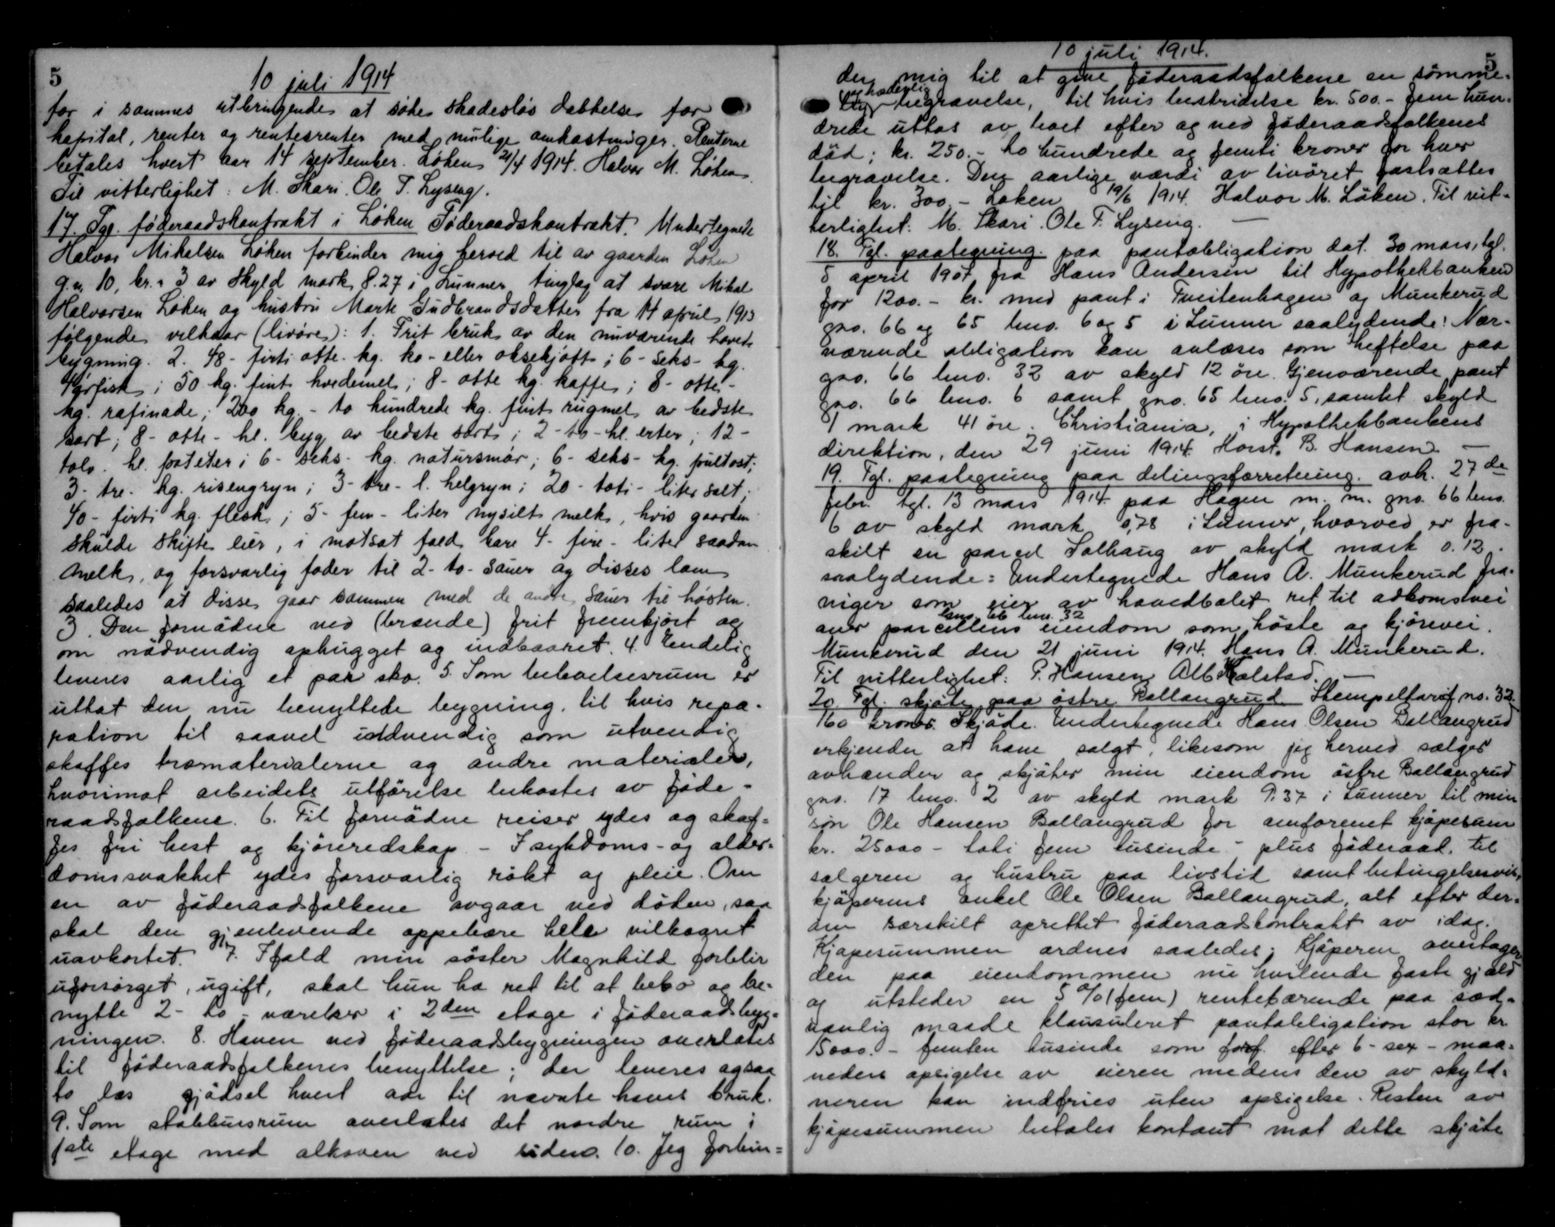 5
10 juli 1914
for i sammes utbringende at söke skadeslös dækkelse for
kapital, renter og rentesrenter med mulige omkostninger. Renterne
betales hvert aar 14 september. Løken 21/4 1914. Halvor M. Løken.
Til vitterlighet: M. Skari. Ole F. Lyseng.
17. Tgl. föderaadskontrakt i Løken Föderaadskontrakt. Undertegnede
Halvor Mikalsen Løken forbinder mig herved til av gaarden Løken
g.n. 10, br.n 3 av skyld mark 8.27 i Lunner tinglag at svare Mikal
Halvorsen Løken og hustru Marte Gudbrandsdatter fra 14 april 1913
følgende vilkaar (livøre): 1. Frit bruk av den nuværende hoved-
bygning. 2. 48 - firti otte - kg. ko - eller oksekjøtt; 6 - seks - kg.
tørfisk; 50 kg. fint hvedemel; 8 - otte kg. kaffe; 8 - otte -
kg. rafinade; 200 kg. - to hundrede kg. fint rugmel av bedste
sort; 8 - otte - hl. byg av bedste sort; 2 - to - hl. erter; 12 -
tolv - hl. poteter; 6 - seks - kg. natursmör; 6 - seks - kg. pultost;
3 - tre - kg. risengryn; 3 - tre - l. helgryn; 20 - toti - liter salt;
40 - firti kg. flesk; 5 - fem - liter nysilt melk, hvis gaarden
skulde skifte eier, i motsat fald bare 4 - fire - liter saadan
melk, og forsvarlig foder til 2 - to - sauer og disses lam
saaledes at disse gaar sammen med de andre sauer til høsten.
3. Den fornødne ved (brænde) frit fremkjørt og
om nødvendig ophugget og indbaaret. 4. Endelig
leveres aarlig et par sko. 5. Som bekvelsesrum er
uttat den nu benyttede bygning, til hvis repa-
ration til saavel indvendig som utvendig
skaffes træmaterialerne og andre materialer,
hvorimot arbeidets utførelse bekostes av føde-
raadsfolkene. 6. Til fornødne reiser ydes og skaf-
fes fri hest og kjøreredskap - I sykdoms- og alder-
domssvakhet ydes forsvarlig røkt og pleie. Om
en av föderaadsfolkene avgaar ved døden, saa
skal den gjenlevende oppebære hele vilkaaret
uavkortet. 7. Ifald min søster Magnhild forblir
uforsørget, ugift, skal hun ha ret til at bebo og be-
nytte 2 - to - værelser i 2den etage i föderaadsbyg-
ningen. 8. Haven ved föderaadsbygningen overlates
til föderaadsfolkenes benyttelse; der leveres ogsaa
to læs gjødsel hvert aar til nævnte haves bruk.
9. Som stabbursrum overlates det nordre rum i
1ste etage med alkoven ved siden. 10. Jeg forbin-
5
10 juli 1914.
der mig til at give föderaadsfolkene en sömme-
hæderlig
lig begravelse, til hvis bestridelse kr. 500. - fem hun-
drede uttas av boet efter og ved föderaadsfolkenes
död; kr. 250. - to hundrede og femti kroner for hver
begravelse. Den aarlige værdi av livöret fastsættes
til kr. 300. - Løken 19/6 1914. Halvor M. Løken. Til vit-
terlighet: M. Skari. Ole F. Lyseng. —
18. Tgl. paategning paa pantobligation dat. 30 mars, tgl.
5 april 1907 fra Hans Andersen til Hypothekbanken
for 1200. - kr. med pant i Tveitenhagen og Munkerud
gno. 66 og 65 bno. 6 og 5 i Lunner saalydende: Nær-
værende obligation kan avlæses som heftelse paa
gno. 66 bno. 32 av skyld 12 öre. Gjenværende pant
gno. 66 bno. 6 samt gno. 65 bno. 5, samlet skyld
1 mark 41 öre. Christiania, i Hypothekbankens
direktion, den 29 juni 1914. Horst. B. Hansen. —
19. Tgl. paategning paa delingsforretning avh. 27de
febr. tgl. 13 mars 1914 paa Hagen m. m. gno. 66 bno.
6 av skyld mark 0,78 i Lunner, hvorved er fra-
skilt en parcel Solhaug av skyld mark 0.12.
saalydende: Undertegnede Hans A. Munkerud fra-
viger som eier av hovedbølet ret til adkomstvei
gno. 66 bno. 32
over parcellens eiendom som høste og kjørevei.
Munkerud den 21 juni 1914. Hans A. Munkerud.
Til vitterlighet: P. Hansen Alb Kalstad. —
20. Tgl. skjøte paa østre Ballangrud Stempeltarif no. 32
160 kroner. Skjøde. Undertegnede Hans Olsen Ballangrud
erkjender at have solgt, likesom jeg herved sælger
avhænder og skjøter min eiendom østre Ballangrud
gno. 17 bno. 2 av skyld mark 9.37 i Lunner til min
søn Ole Hansen Ballangrud for omforenet kjøpesum
kr. 25000 - toti fem tusinde - plus föderaad til
sælgeren og hustru paa livstid samt betingelsesvis
kjøperens onkel Ole Olsen Ballangrud, alt efter der-
om særskilt oprettet föderaadskontrakt av idag.
Kjøpesummen ordnes saaledes: Kjøperen overtager
den paa eiendommen nu hvilende faste gjæld
og utsteder en 5 o/o (fem) rentebærende paa sæd-
vanlig maade klausuleret pantobligation stor kr
15000. - femten tusinde som forf. efter 6 - sex - maa-
neders opsigelse av eieren medens den av skyld-
neren kan indfries uten opsigelse. Resten av
kjøpesummen betales kontant mot dette skjøte